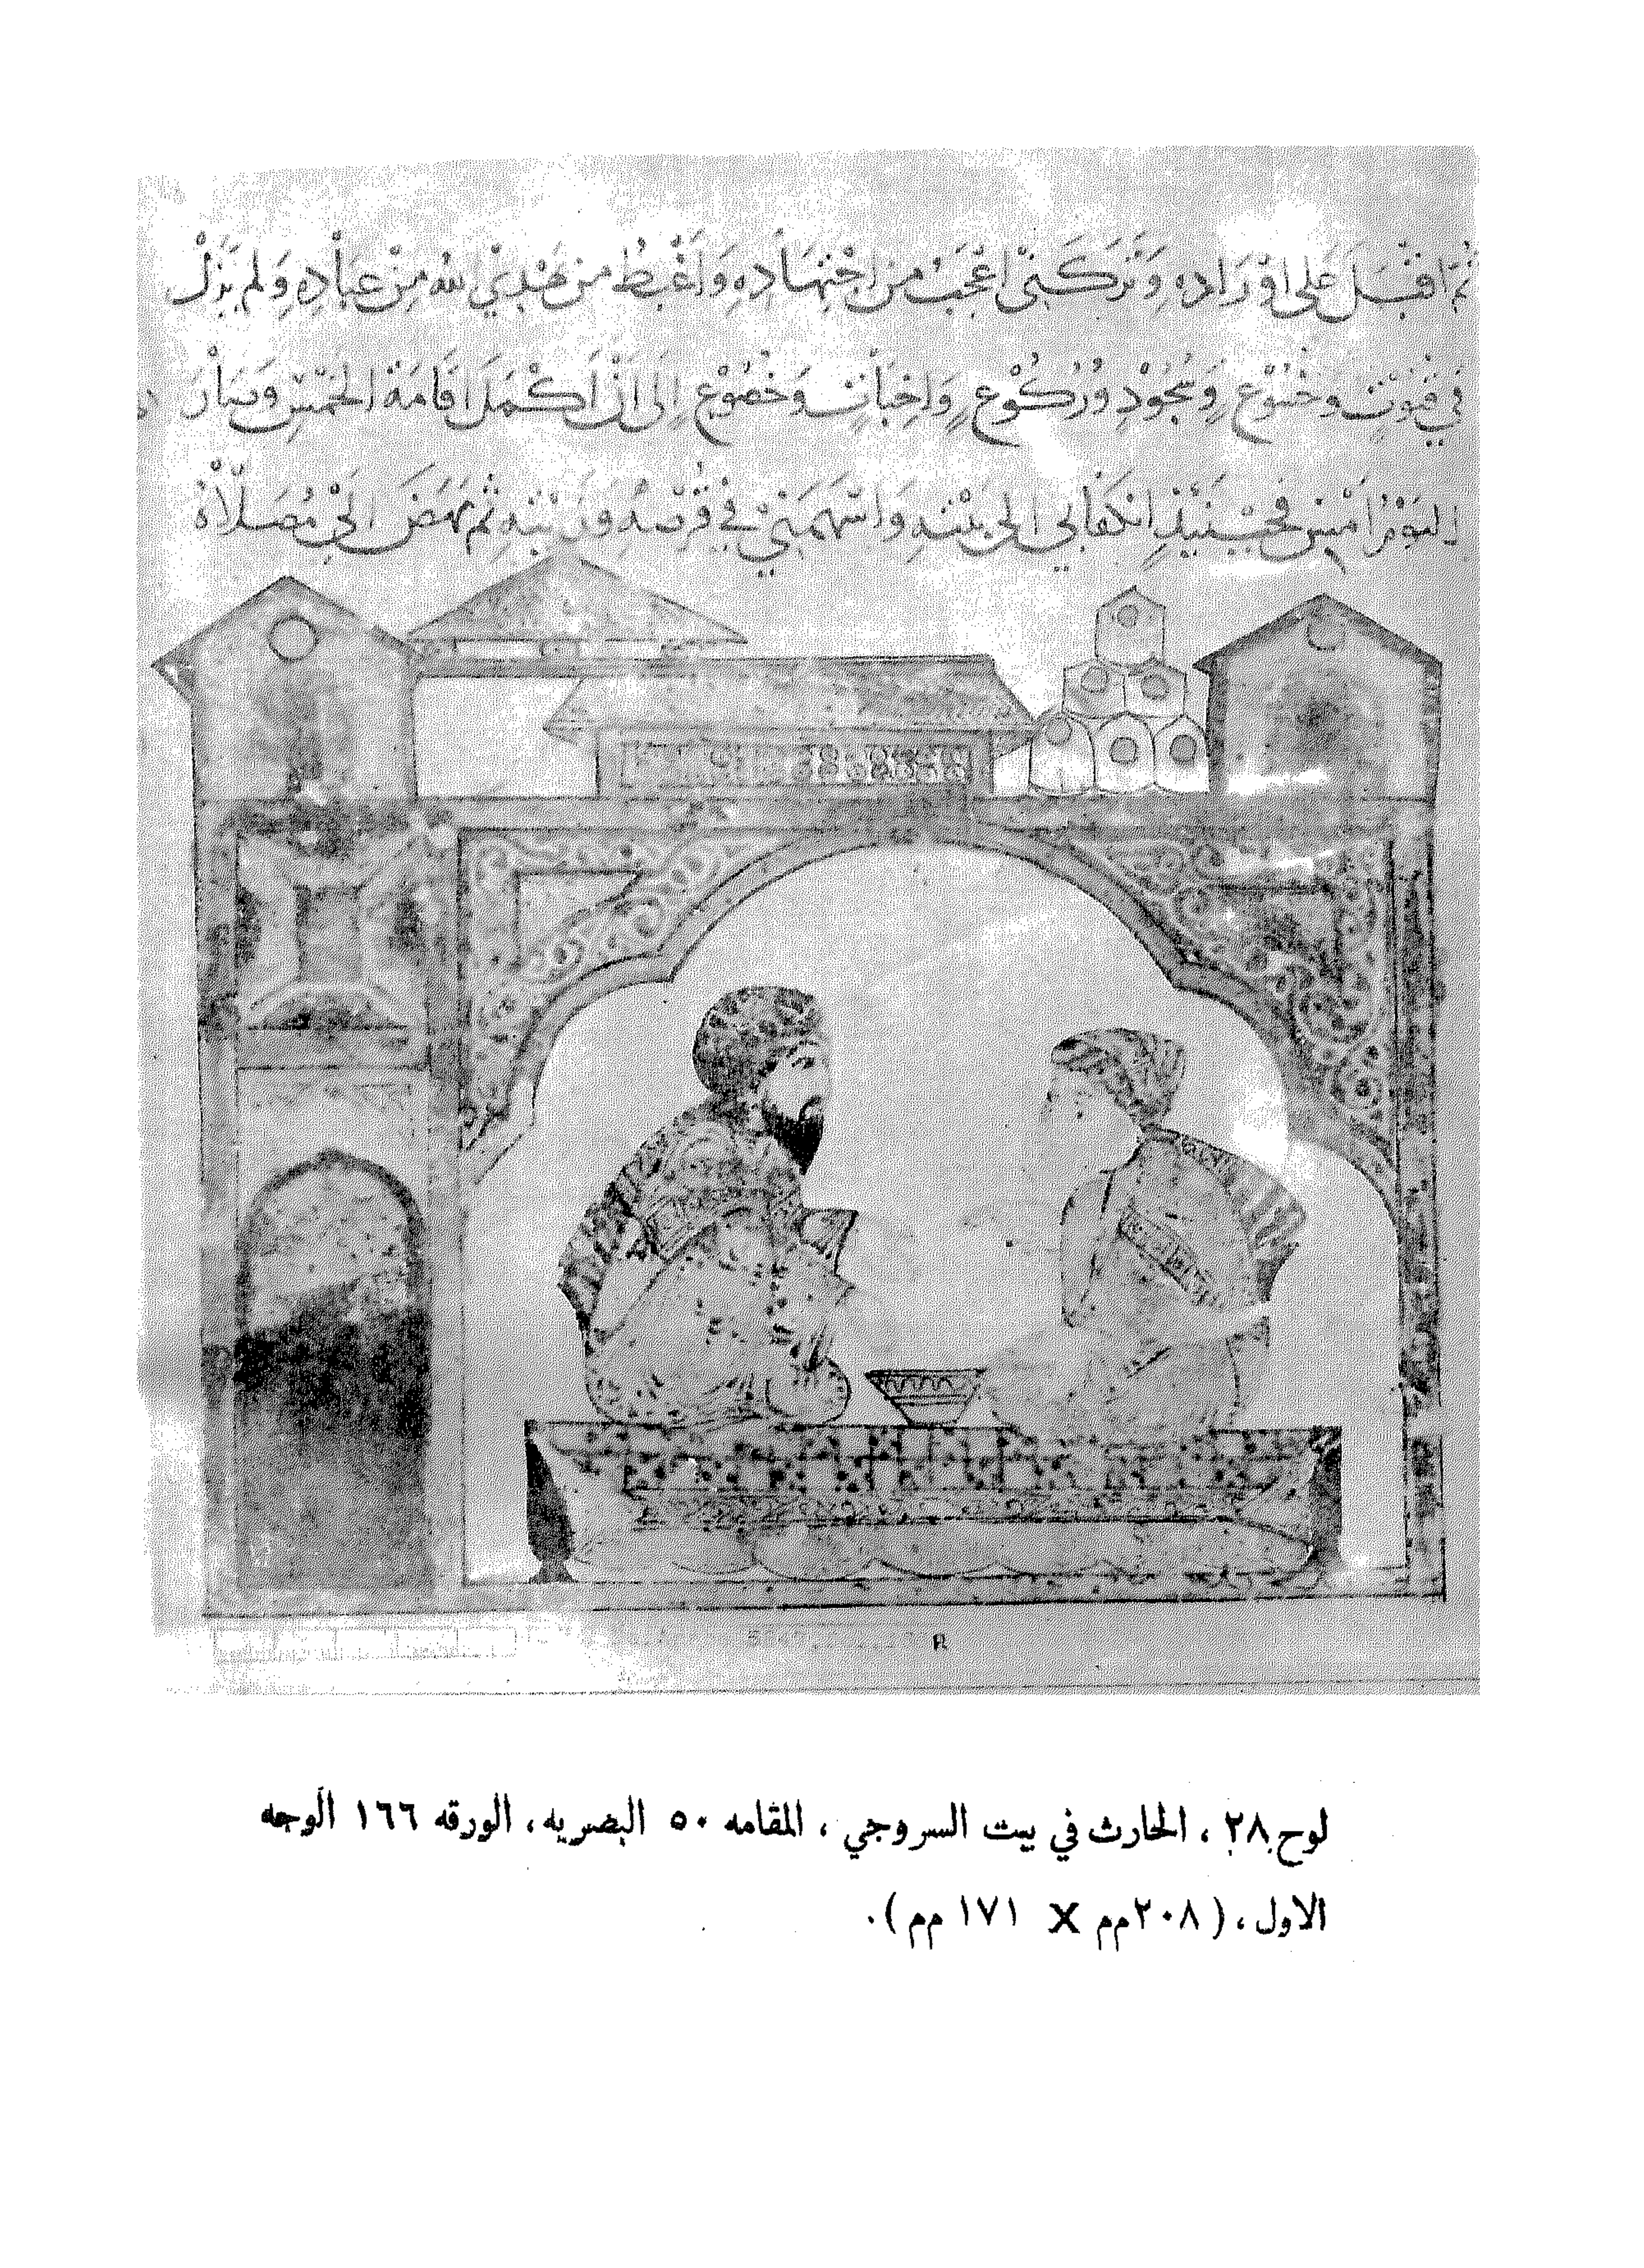 ثُمَّ اقْبَلَ عَلَى اوْرَادِهِ وَتَرَكَنِي اعْجَبُ مِنِ اجْتِهَادِهِ وَاَغْبِطُ مَن يَهْدِي اللهُ مِنْ عِبَادِهِ وَلَمْ يَزَلْ
فِي قُنُوتٍ وَخُشُوعٍ وَسُجُودٍ وَرُكُوعٍ وَاِخْبَاتٍ وَخُضُوعٍ اِلَى اَنْ اَكْمَلَ اقَامَةَ الخَمْسِ وَصَارَ
اليَوْمُ اَمْسِ فَحِينَئِذٍ انكَفَا بِي الَى بَيْتِهِ وَاَسْهَمَنِي فِي قُرْصِهِ وَزَيْتِهِ ثُمَّ نَهَضَ الَى مُصَلَّاهُ
لوح ٢٨ ، الحارث في بيت السروجي ، المقامه ٥٠ البصريه ، الورقه ١٦٦ الوجه
الاول ، (٢٠٨مم X ١٧١ مم ) .